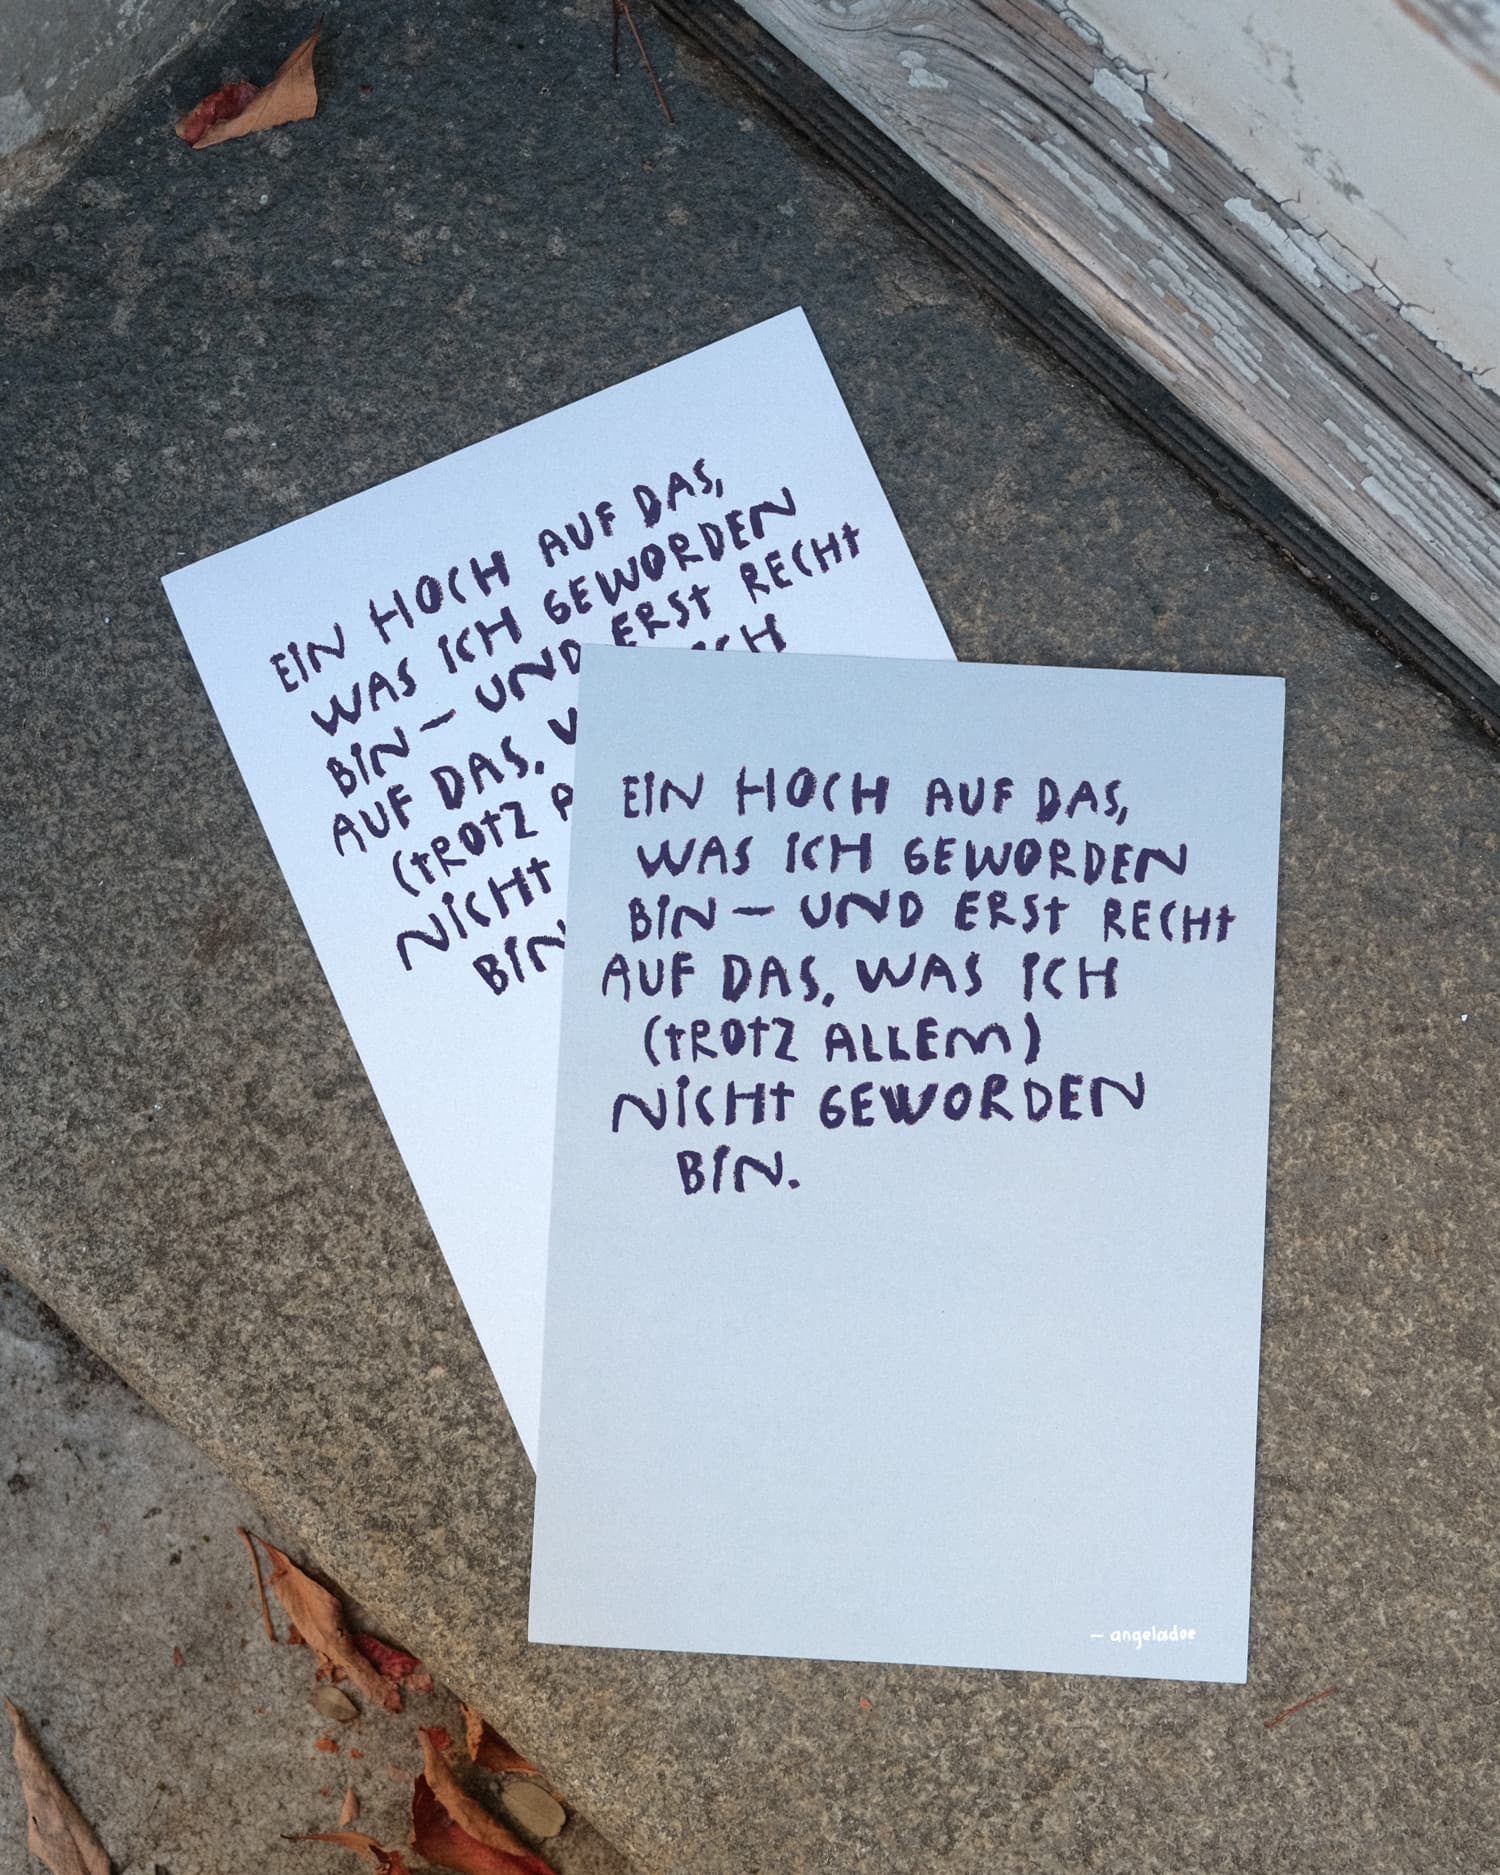 EIN HOCH AUF DAS,
WAS ICH GEWORDEN
BIN – UND ERST RECHT
AUF DAS,
(TROTZ
NICHT
BIN
ICH
EIN HOCH AUF DAS,
WAS ICH GEWORDEN
BIN – UND ERST RECHT
AUF DAS, WAS ICH
(TROTZ ALLEM)
NICHT GEWORDEN
BIN.
– angeladoe